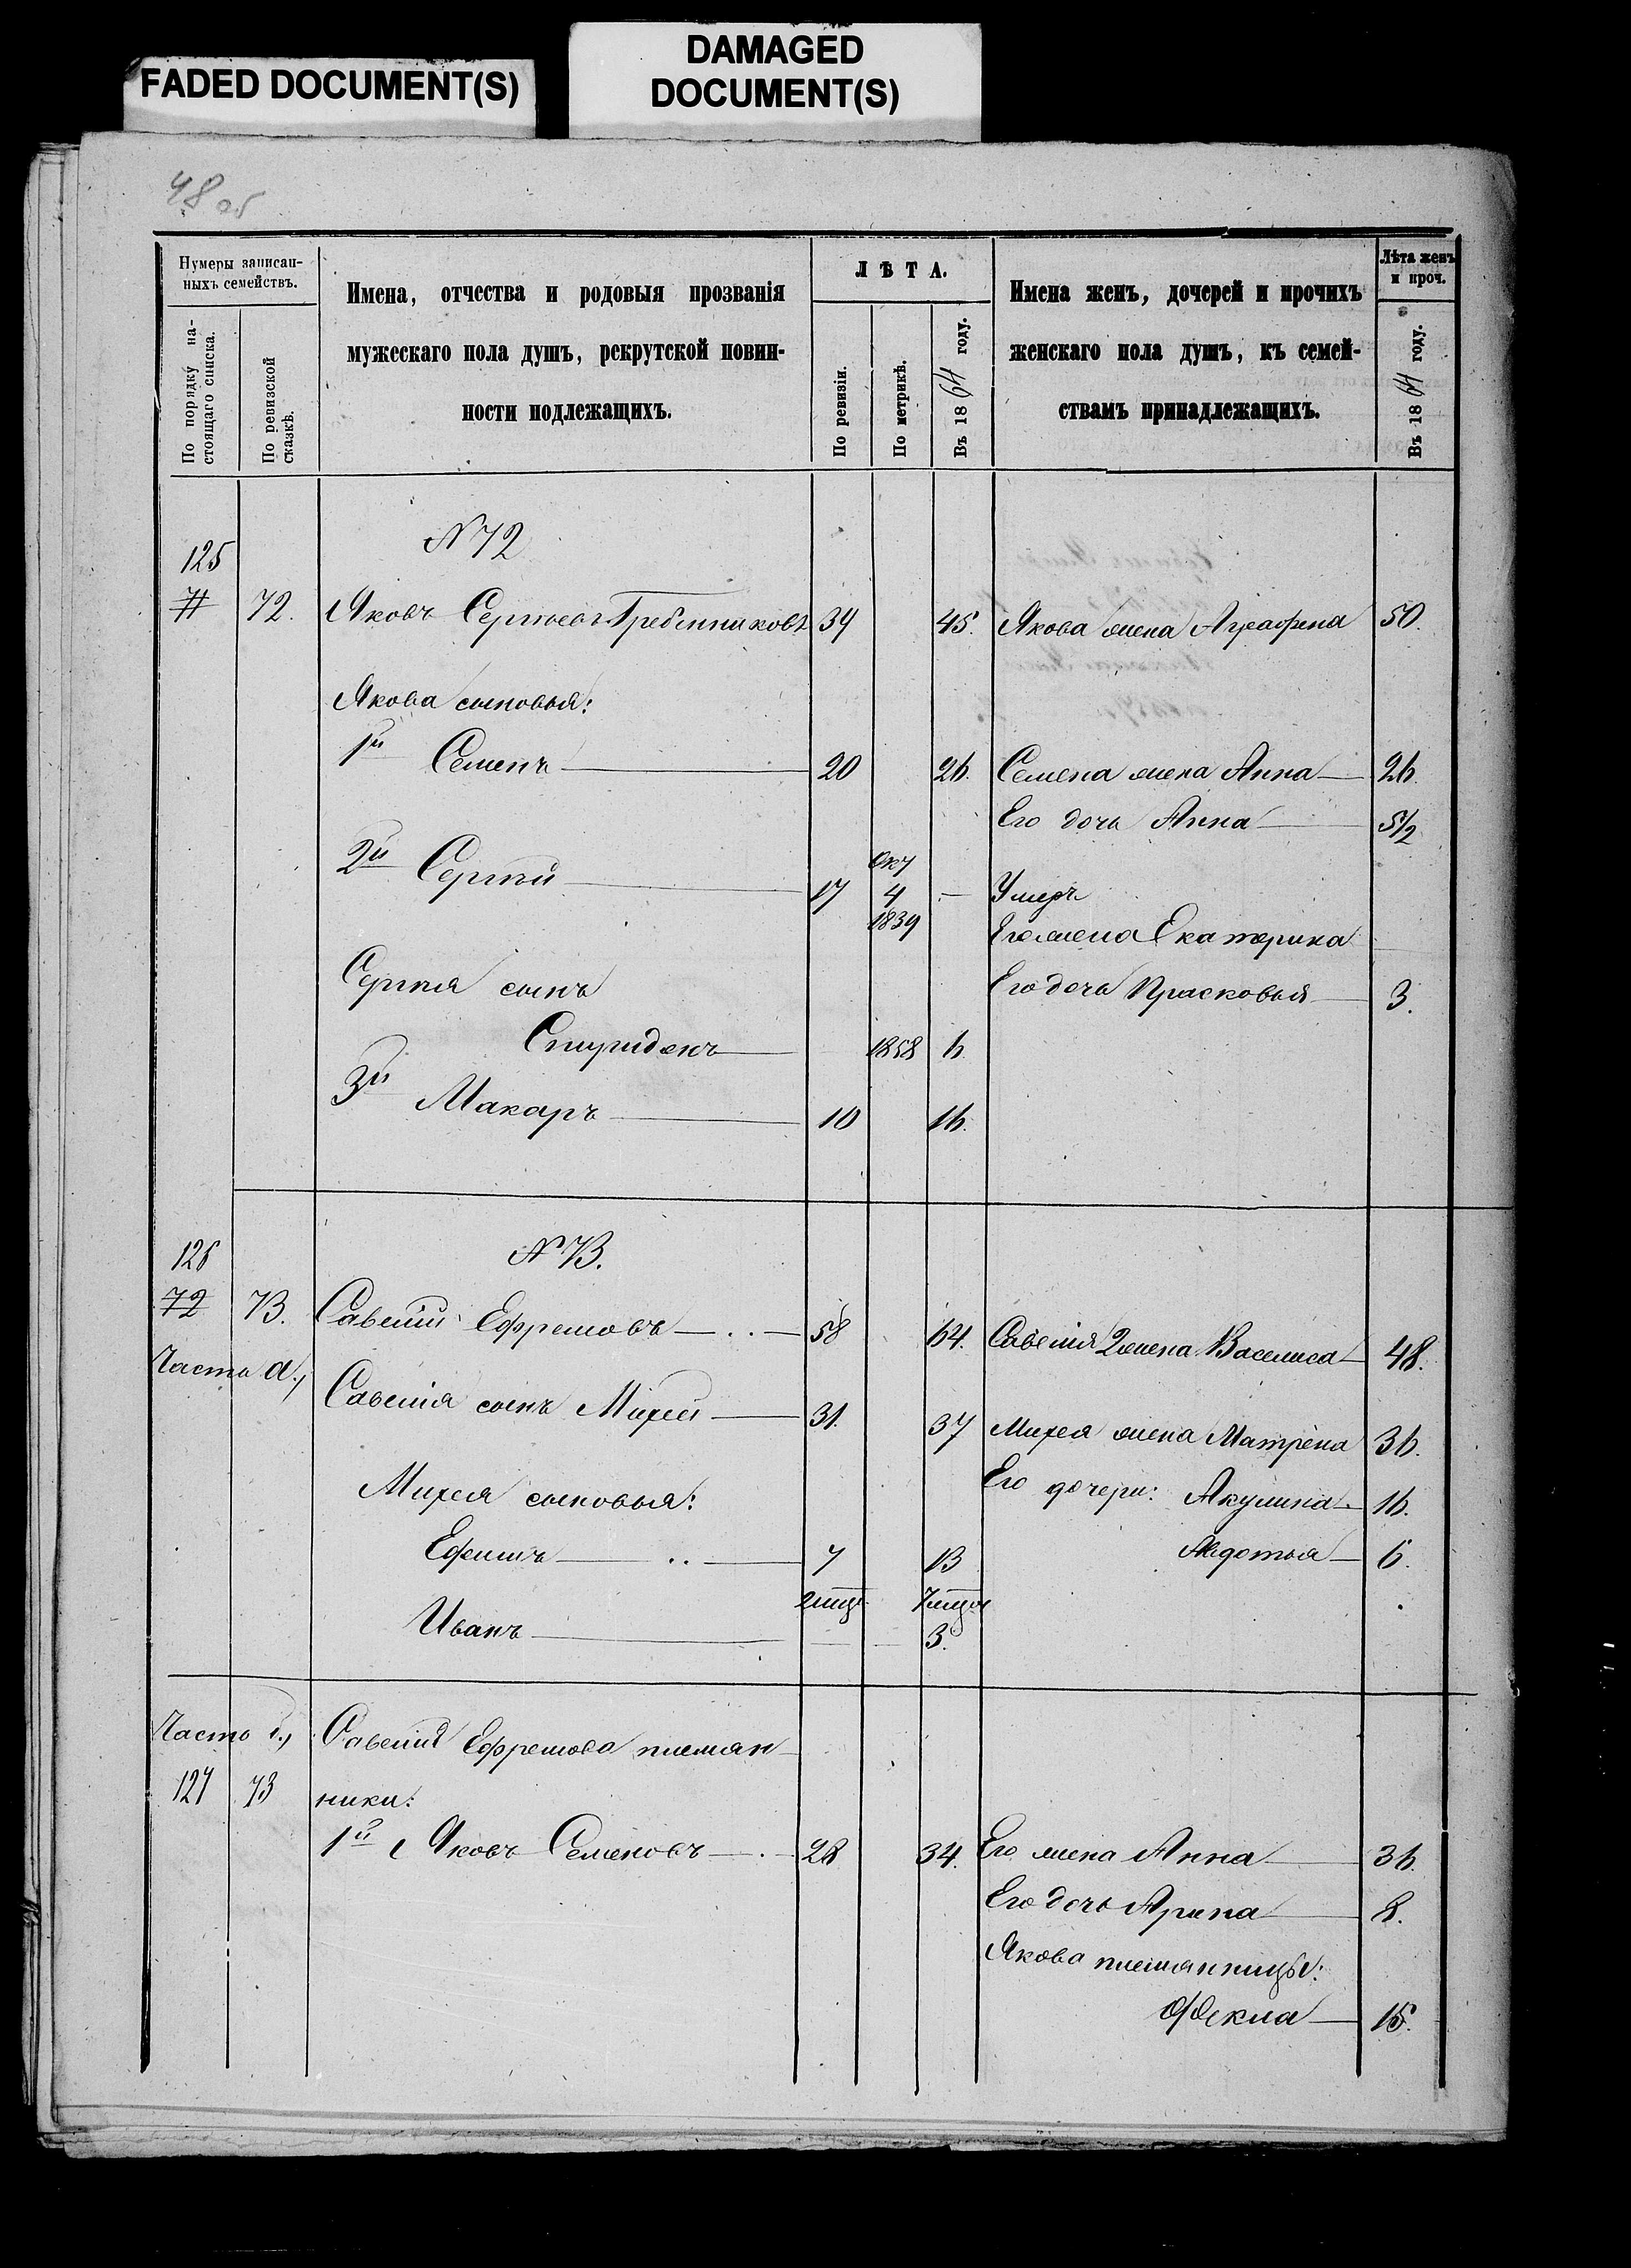 FADED DOCUMENT(S)
DAMAGED
DOCUMENT(S)
48 об
Нумеры записан-
ныхъ семействъ.
По порядку на-
стоящаго списка.
По ревизской
сказкѣ.
Имена, отчества и родовыя прозванія
мужескаго пола душъ, рекрутской повин-
ности подлежащихъ.
ЛѢТА.
По ревизіи.
По метрикѣ.
Въ 1864 году.
Имена женъ, дочерей и прочихъ
женскаго пола душъ, къ семей-
ствамъ принадлежащихъ.
Лѣта женъ
и проч.
Въ 1864 году.
N 72
125
71 72. Яковъ Сергѣевъ Гребенниковъ 39 45. Якова жена Аграфена 50.
Якова сыновья:
1й Семенъ 20 26. Семена жена Анна 26.
Его дочь Анна 5½
2й Сергѣй 17 Окт 4 1839 — Умеръ
Его жена Екатерина
Сергѣя сынъ Его дочь Прасковья 3.
Спиридонъ 1858 6
3й Макаръ 10 16.
126 N 73.
72 73. Савелій Ефремовъ 58 64. Савелія 2 жена Василиса 48.
Часть а.,
Савелія сынъ Михей 31. 37 Михея жена Матрена 36.
Михея сыновья: Его дочери: Акулина 16.
Ефимъ 7 13 Авдотья 6.
Иванъ 3.
Часть б., Савелія Ефремова племян-
127 73 ники:
1й Яковъ Семеновъ 28 34. Его жена Анна 36.
Его дочь Арина 8.
Якова племянницы:
Фекла 15.